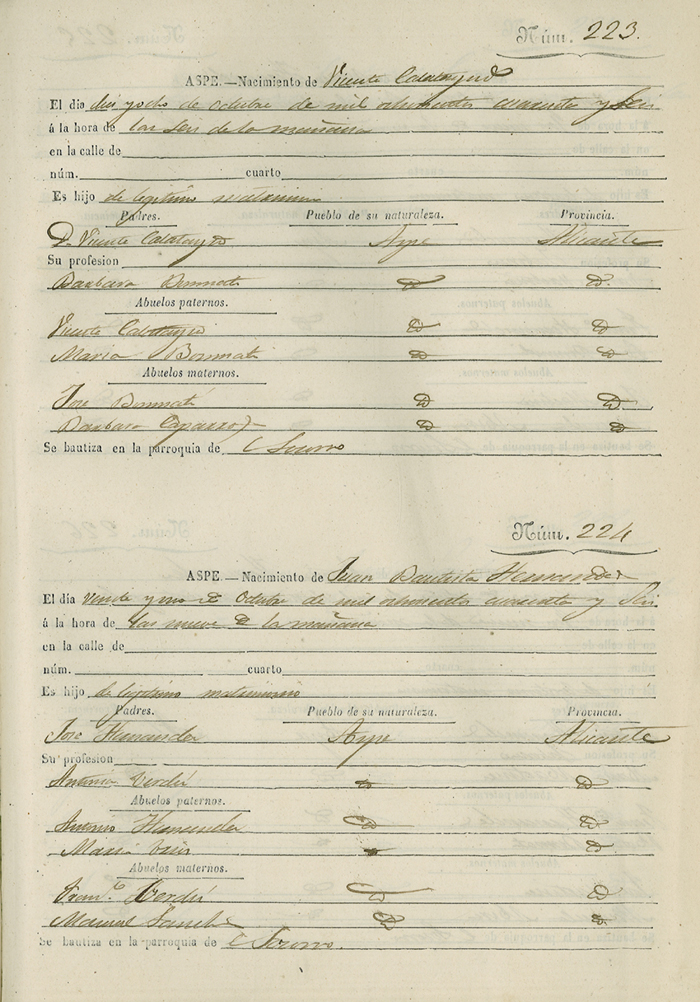 Núm. 223.
ASPE.—Nacimiento de Vicente Calatayud
El día diez y ocho de octubre de mil ochocientos cuarenta y Seis
á la hora de las seis de la mañana
en la calle de
núm. cuarto
Es hijo de legitimo matrimonio
Padres. Pueblo de su naturaleza. Provincia.
D. Vicente Calatayud Aspe Alicante
Su profesion
Barbara Bonmati id id.
Abuelos paternos.
Vicente Calatayud id id
Maria Bonmati id id
Abuelos maternos.
Jose Bonmati id id
Barbara Caparros id id
Se bautiza en la parroquia de el Socorro
Núm. 224
ASPE.—Nacimiento de Juan Bautista Hernandez
El día veinte y uno de Octubre de mil ochocientos cuarenta y Seis
á la hora de las nueve de la mañana
en la calle de
núm. cuarto
Es hijo de legitimo matrimonio
Padres. Pueblo de su naturaleza. Provincia.
Jose Hernandez Aspe Alicante
Su profesion
Antonia Verdú id id
Abuelos paternos.
Antonio Hernandez id id
Maria id id
Abuelos maternos.
Fran.co Verdú id id
Manuela Sanchez id id
Se bautiza en la parroquia de el Socorro.